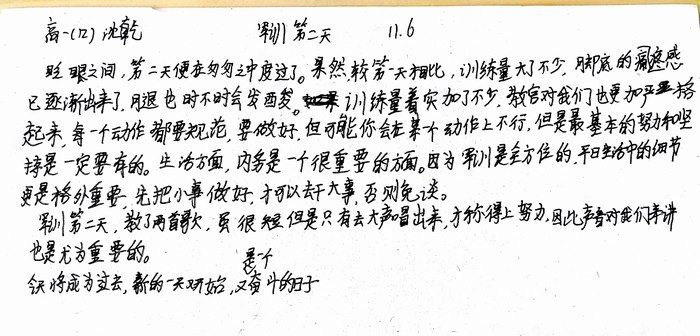 高一(12) 沈乾 军训第二天 11.6
眨眼之间,第二天便在匆匆之中度过了。果然,较第一天相比,训练量大了不少,脚底的痛感
已逐渐出来了,腿也时不时会发酸发。训练量着实加了不少,教官对我们也更加严格
起来,每一个动作都要规范,要做好,但可能你会在某个动作上不行,但是最基本的努力和坚
持是一定要有的。生活方面,内务是一个很重要的方面。因为军训是全方位的,平日生活中的细节
更是格外重要,先把小事做好,才可以去干大事,否则免谈。
军训第二天,教了两首歌,虽很短但是只有去大声唱出来,才称得上努力,因此声音对我们来讲
也是尤为重要的。
今天将成为过去,新的一天又开始,又是一个奋斗的日子